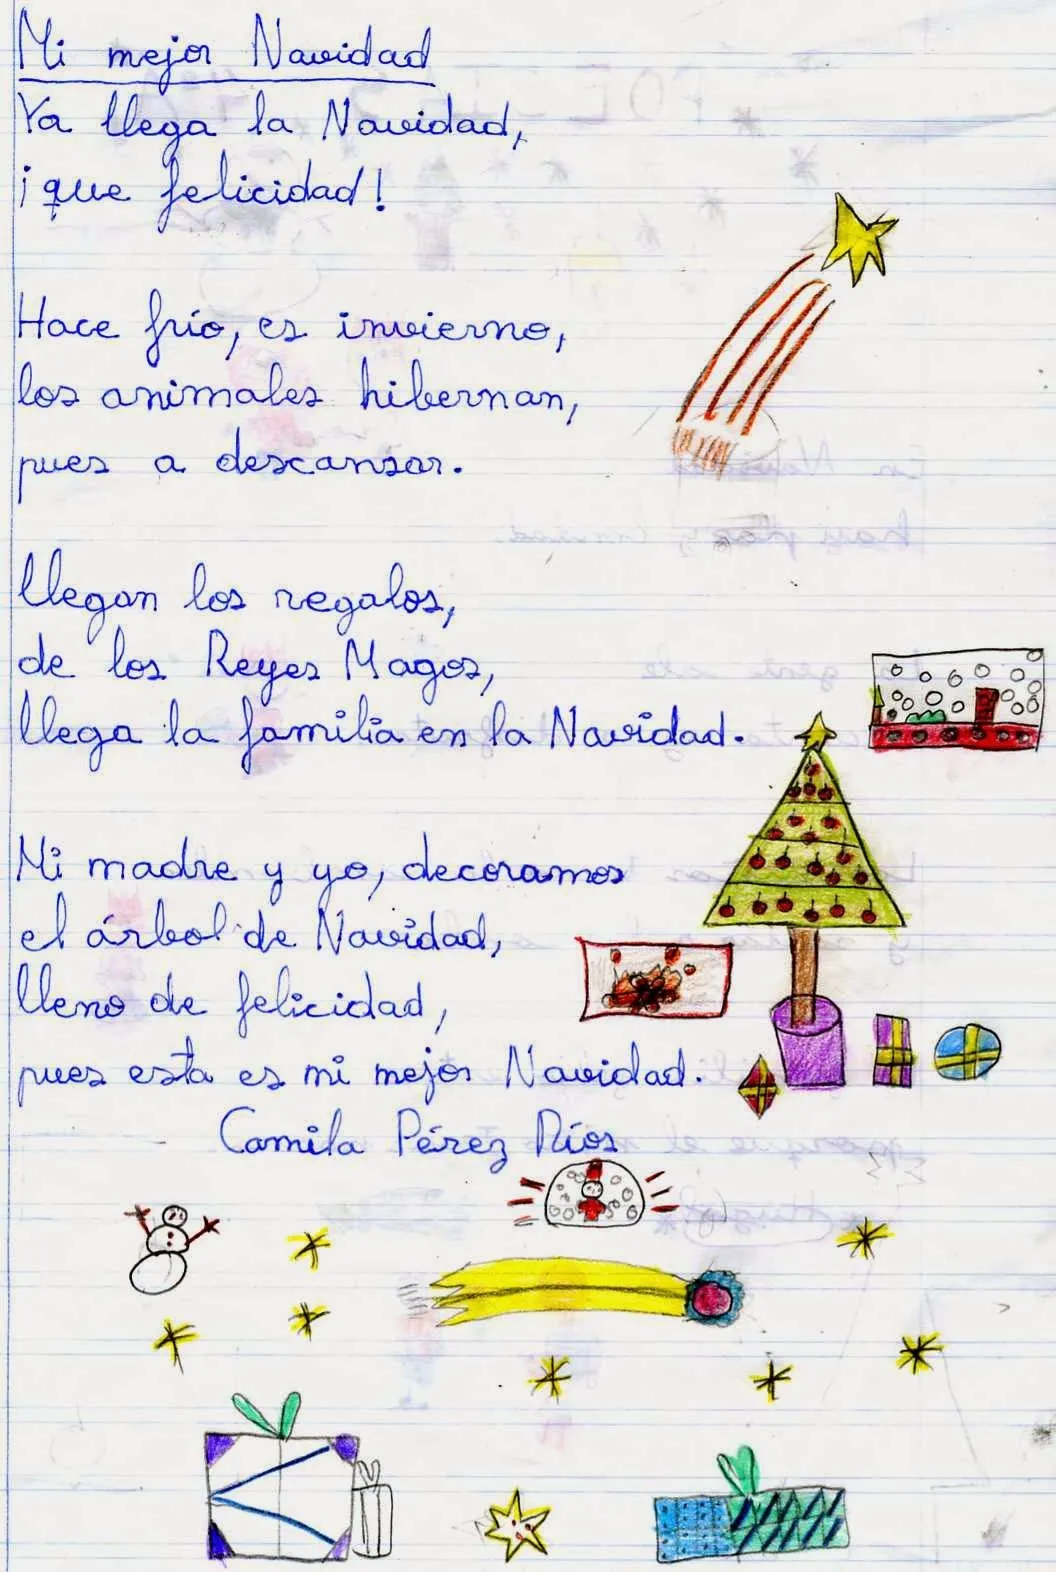 Mi mejor Navidad
Ya llega la Navidad,
¡que felicidad!
Hace frío, es invierno,
los animales hibernan,
pues a descansar.
Llegan los regalos,
de los Reyes Magos,
llega la familia en la Navidad.
Mi madre y yo, decoramos
el árbol de Navidad,
lleno de felicidad,
pues esta es mi mejor Navidad.
Camila Pérez Ríos